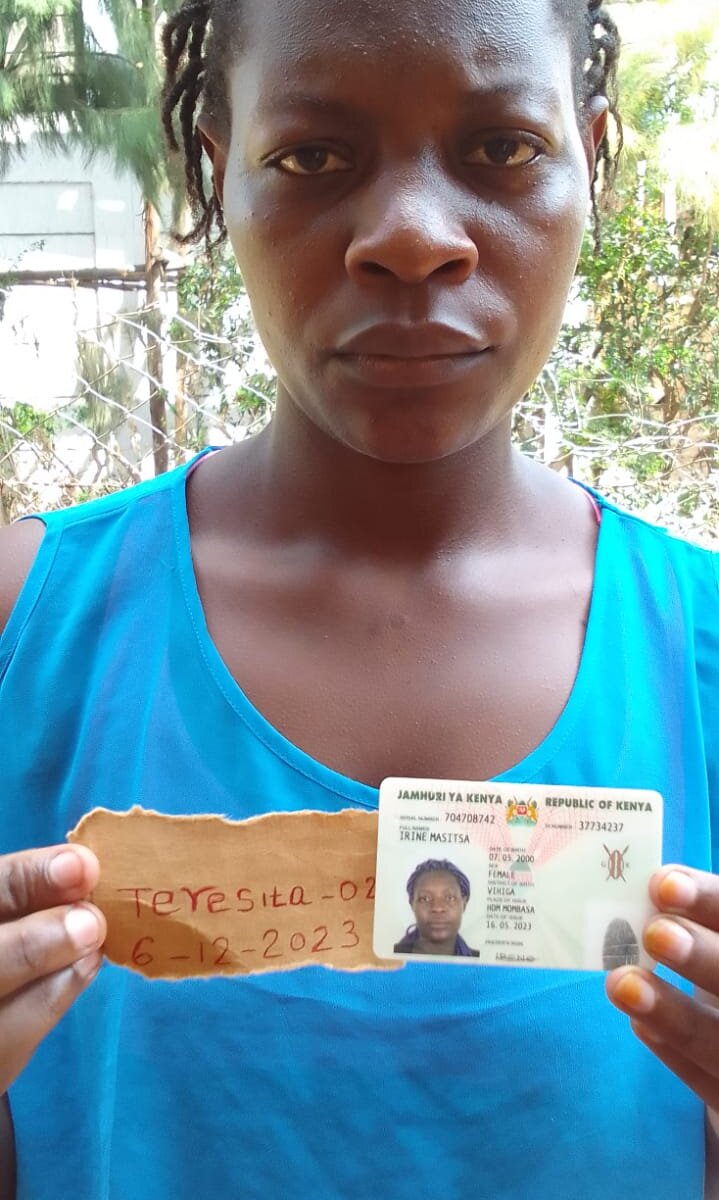 Teresita - 02
6-12-2023
JAMHURI YA KENYA REPUBLIC OF KENYA
SERIAL NUMBER: 704708742 ID NUMBER: 37734237
FULL NAMES
IRINE MASITSA
DATE OF BIRTH
07.05.2000
SEX
FEMALE
DISTRICT OF BIRTH
VIHIGA
PLACE OF ISSUE
HDM MOMBASA
DATE OF ISSUE
16.05.2023
HOLDER'S SIGN.